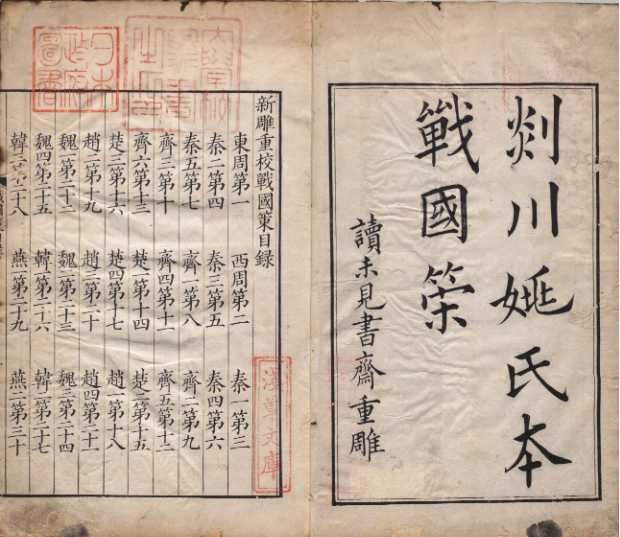 剡川姚氏本
戰國策
讀未見書齋重雕
大學校
圖書
之印
日本
政府
圖書
新雕重校戰國策目錄
東周第一 西周第二 秦一第三
秦二第四 秦三第五 秦四第六
秦五第七 齊一第八 齊二第九
齊三第十 齊四第十一 齊五第十二
齊六第十三 楚一第十四 楚二第十五
楚三第十六 楚四第十七 趙一第十八
趙二第十九 趙三第二十 趙四第二十一
魏一第二十二 魏二第二十三 魏三第二十四
魏四第二十五 韓一第二十六 韓二第二十七
韓三第二十八 燕一第二十九 燕二第三十
淺草文庫